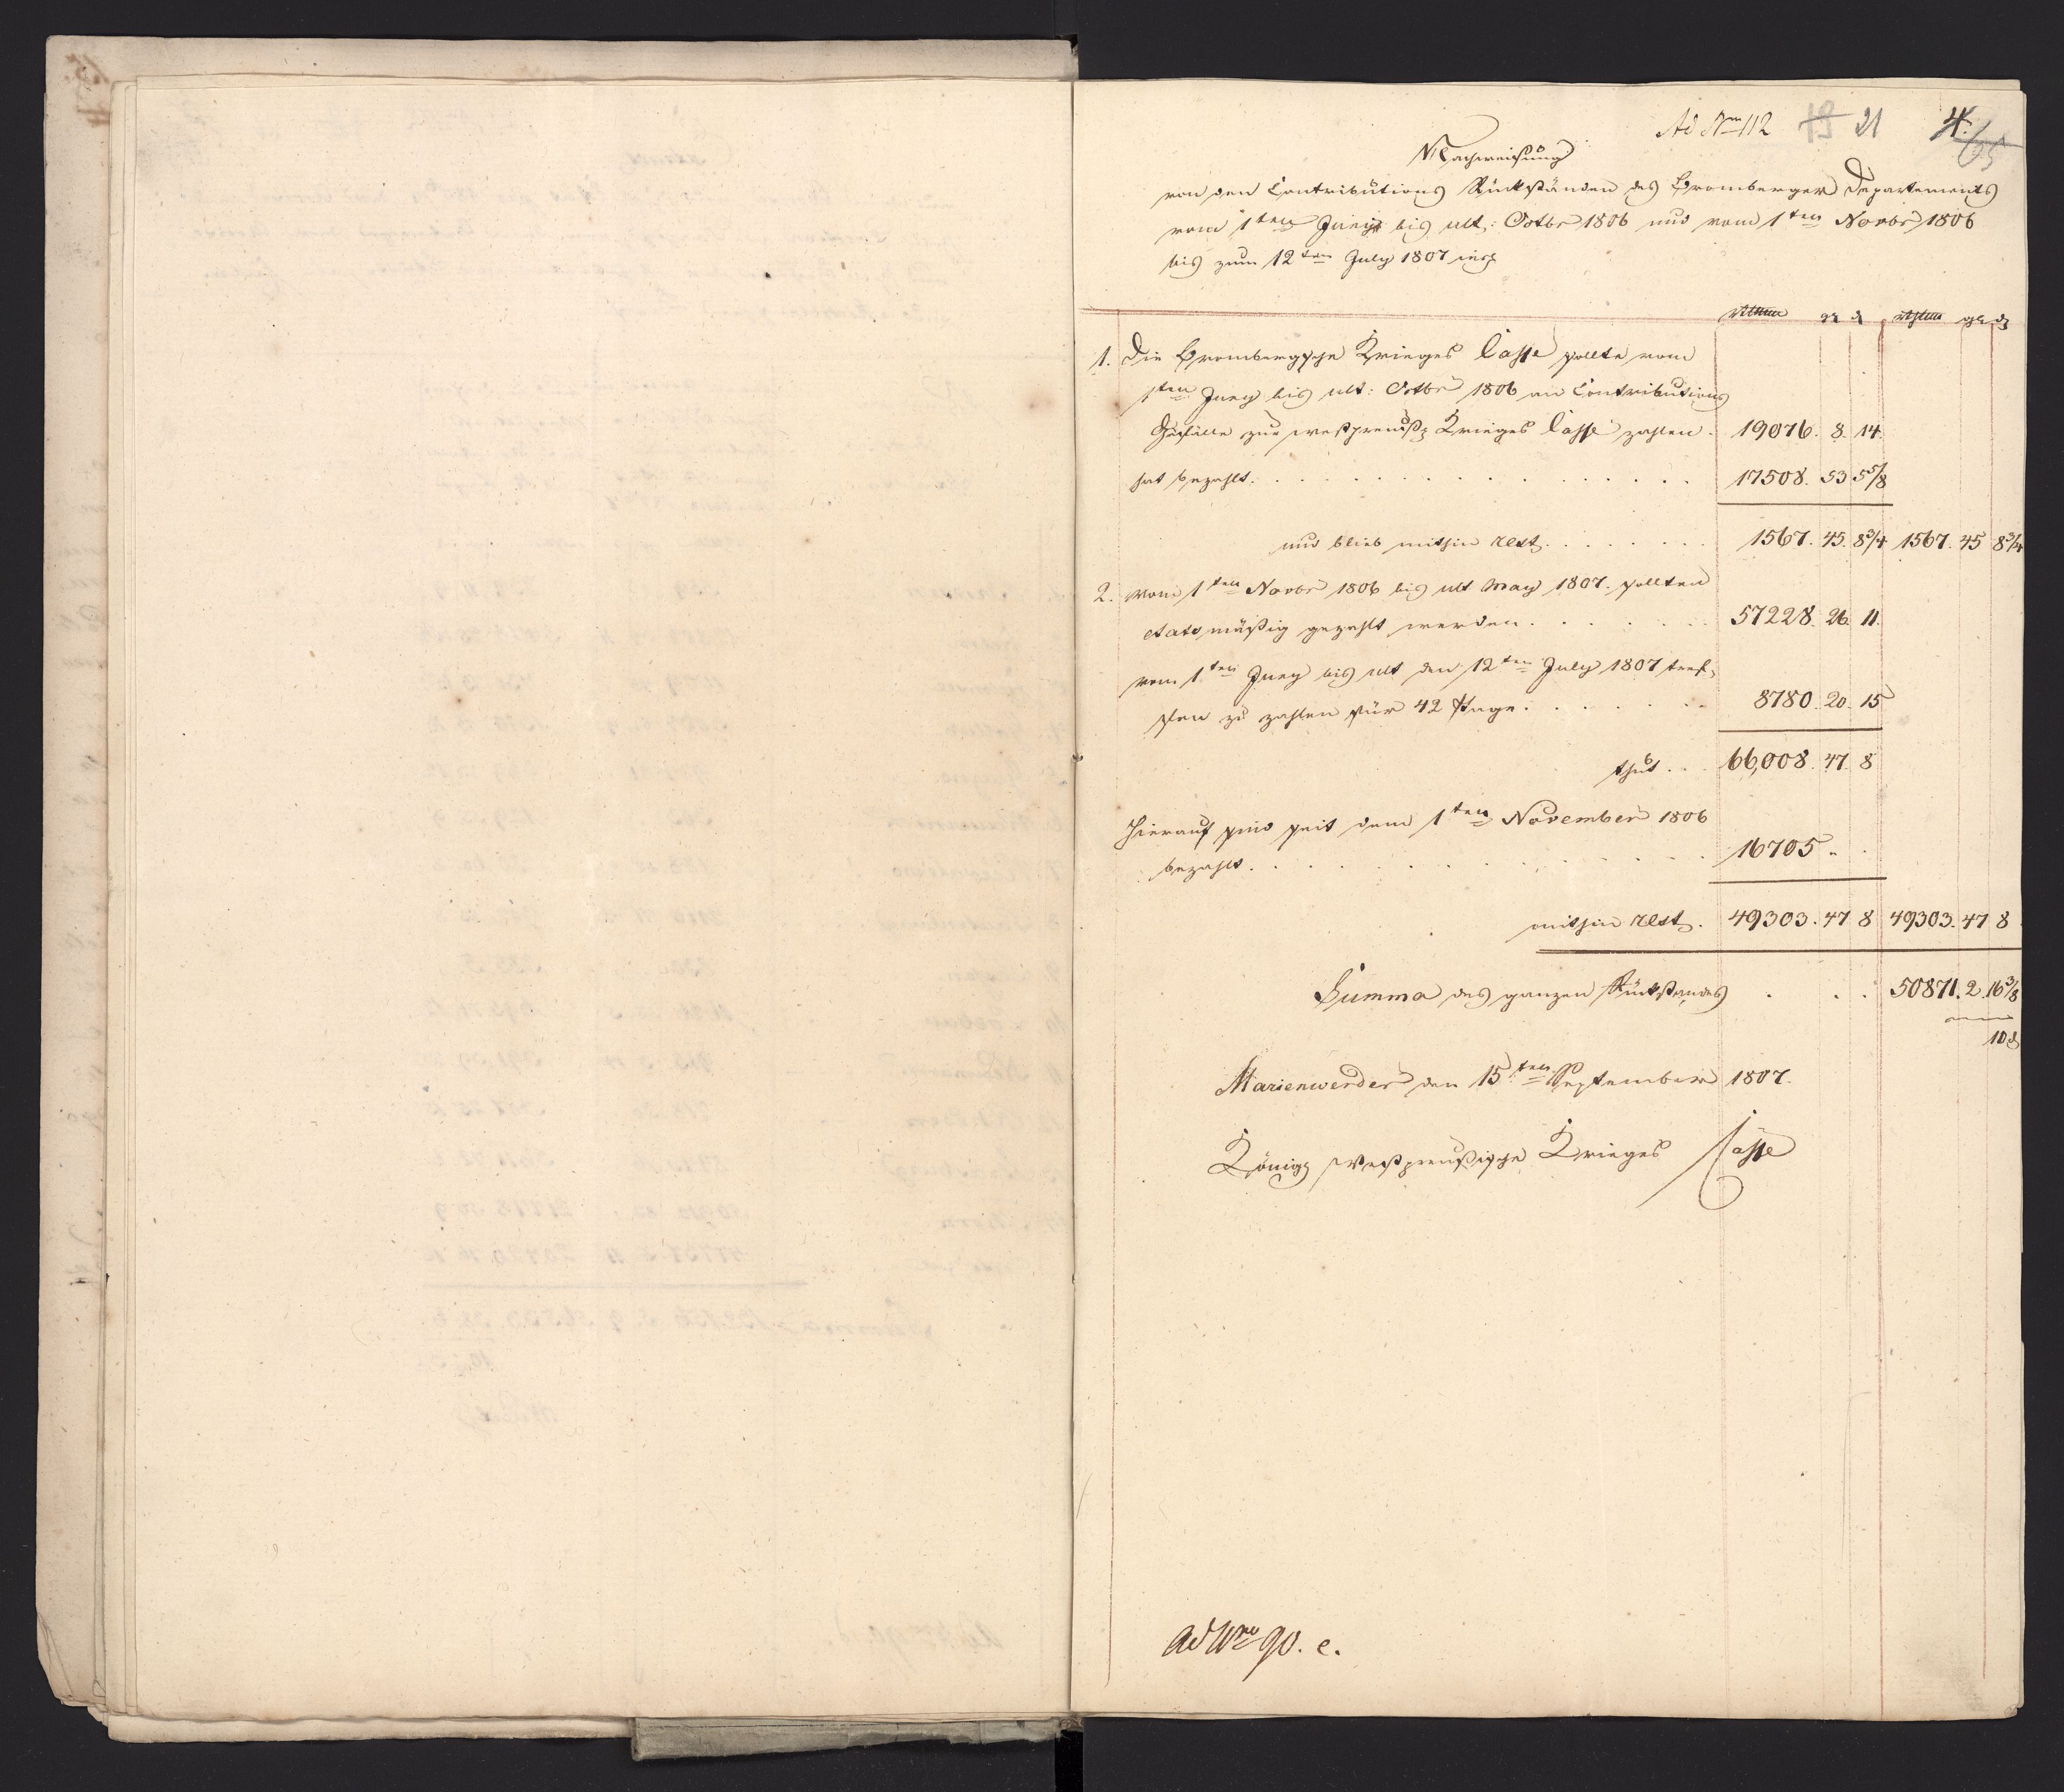 Ad Nro 112 19 21 4. 65
Nachweisung
von den Contributions Rückständen des Bromberger Departements
vom 1ten Juny bis ult: Octbr 1806 und vom 1ten Novbr 1806
bis zum 12ten July 1807 incl
rthlr gr d rthlr gr d
1. Die Brombergsche Krieges Casse sollte vom
1ten Juny bis ult: Octbr 1806 an Contributions
Gefälle zur westpreuß Krieges Casse zahlen. 19076. 8. 14.
hat bezahlt. 17508. 53 5 5/8
und blieb mithin Rest. 1567. 45. 8 3/4 1567. 45 8 3/4
2. vom 1ten Novbr 1806 bis ult May 1807. sollten
etatsmäßig gezahlt werden. 57228. 26 11.
vom 1ten Juny bis ult den 12ten July 1807 tref-
fen zu zahlen für 42 Tage. 8780. 20. 15
thut. 66,008. 47. 8
Hierauf sind seit dem 1ten November 1806
bezahlt. 16705 „ .
mithin Rest. 49303. 47 8 49303. 47 8
Summa des ganzen Rückstandes 50871. 2. 16 3/8
10 d
Marienwerder den 15ten September 1807.
Königl Westpreußische Krieges Casse
ad Nro 90. e.